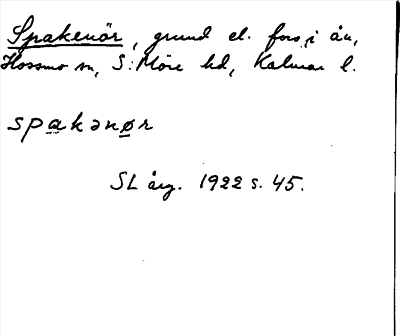 Spakenör, grund el. fors i ån,
Hossmo sn, S: Möre hd, Kalmar l.
spakənør
SL årg. 1922 s. 45.